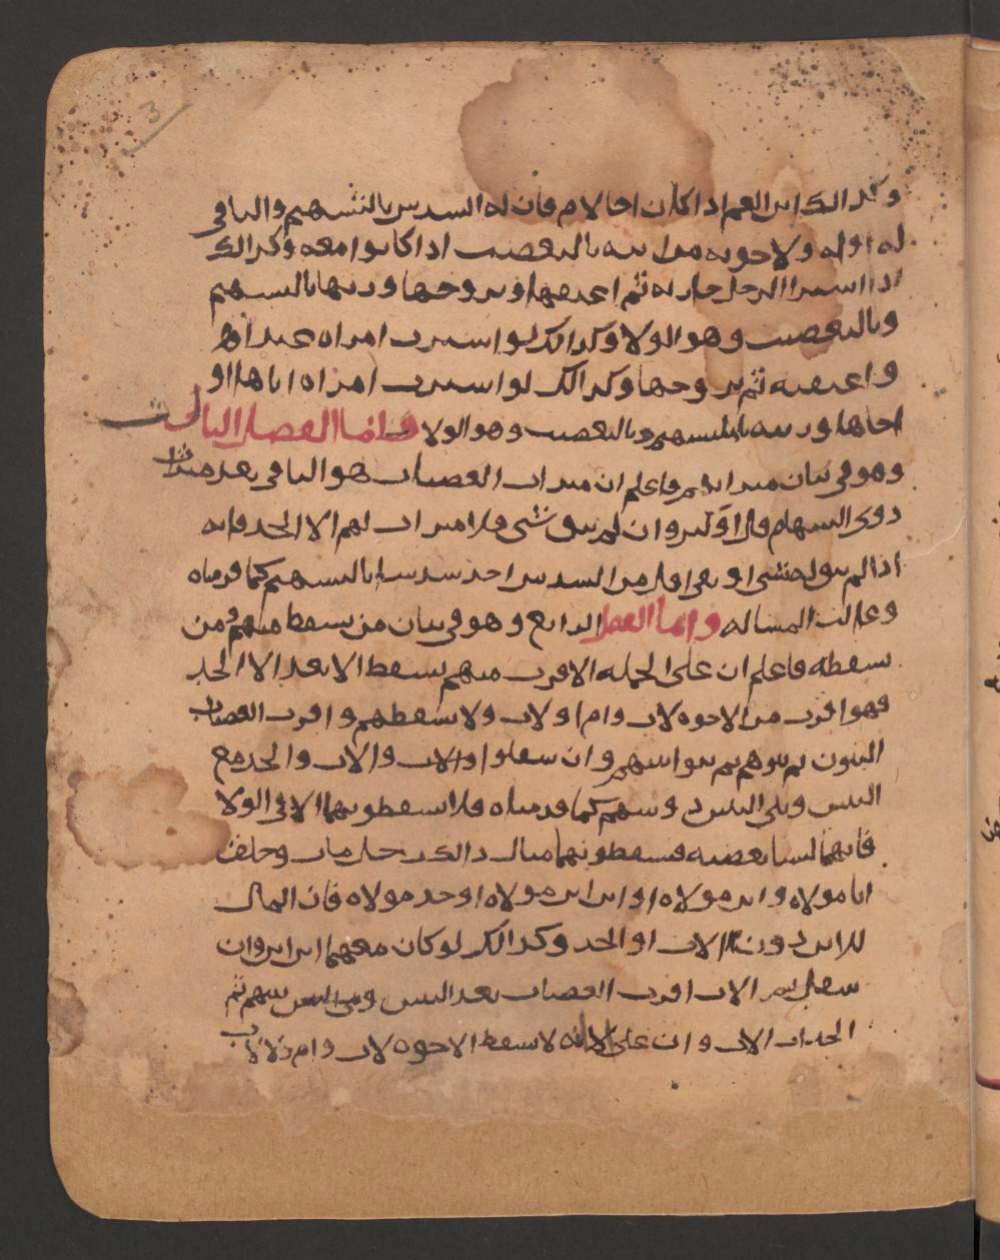 3
وكذالك ابن العم اذا كان اخا لام فان له السدس بالتسهيم والباقي
له او له ولاخوته من ابيه بالتعصيب اذا كانوا معه وكذالك
اذا اشترا الرجل جاريه ثم اعتقها وتزوجها ورثها بالتسهيم
وبالتعصيب وهو الولا وكذالك لو اشترت امراه عبدا
واعتقته ثم تزوجها وكذالك لو اشترت امراه اباها او
اخاها ورثته بالتسهيم وبالتعصيب وهو الولا واما الفصل الثالث
وهو في بيان ميراثهم فاعلم ان ميراث العصبات هو الباقي بعد ميراث
ذوي السهام قل او كثر وان لم يبق شي فلا ميراث لهم الا الجد فانه
اذا لم يبق له شي او بقي اقل من السدس اخذ سدسا بالتسهيم كما قدمناه
وعالت المساله واما الفصل الرابع وهو في بيان من يسقط منهم ومن
يسقطه فاعلم ان على الجمله الاقرب منهم يسقط الابعد الا الجد
فهو اقرب من الاخوه لاب وام او لاب ولا يسقطهم واقرب العصبات
البنون ثم بنوهم ثم بنوا بنيهم وان سفلوا والاب والجد مع
البنين وبني البنين ذو سهم كما قدمناه فلا يسقطونهما الا في الولا
فانهما ليسا بعصبه فيسقطونهما مثال ذالك رجل مات وخلف
ابا مولاه وابن مولاه او ابن ابن مولاه او جد مولاه فان المال
للابن دون الاب او الجد وكذالك لو كان معهما ابن ابن وان
سفل ثم الاب اقرب العصبات بعد البنين وبني البنين بنيهم ثم
الجد اب الاب وان علا الا انه لا يسقط الاخوه لاب وام ولا لاب